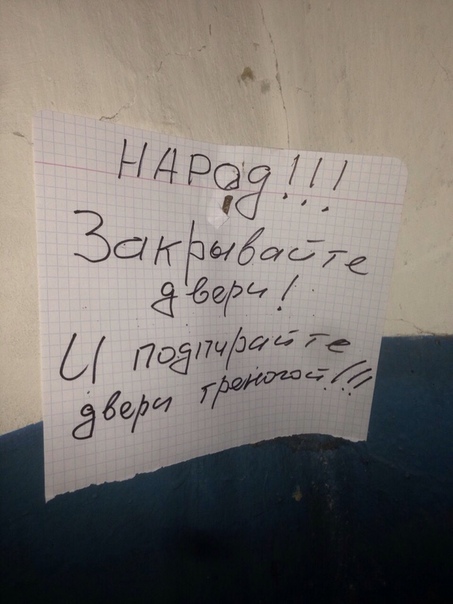 НАРОД!!!
Закрывайте
двери!
И подпирайте
двери треногой!!!